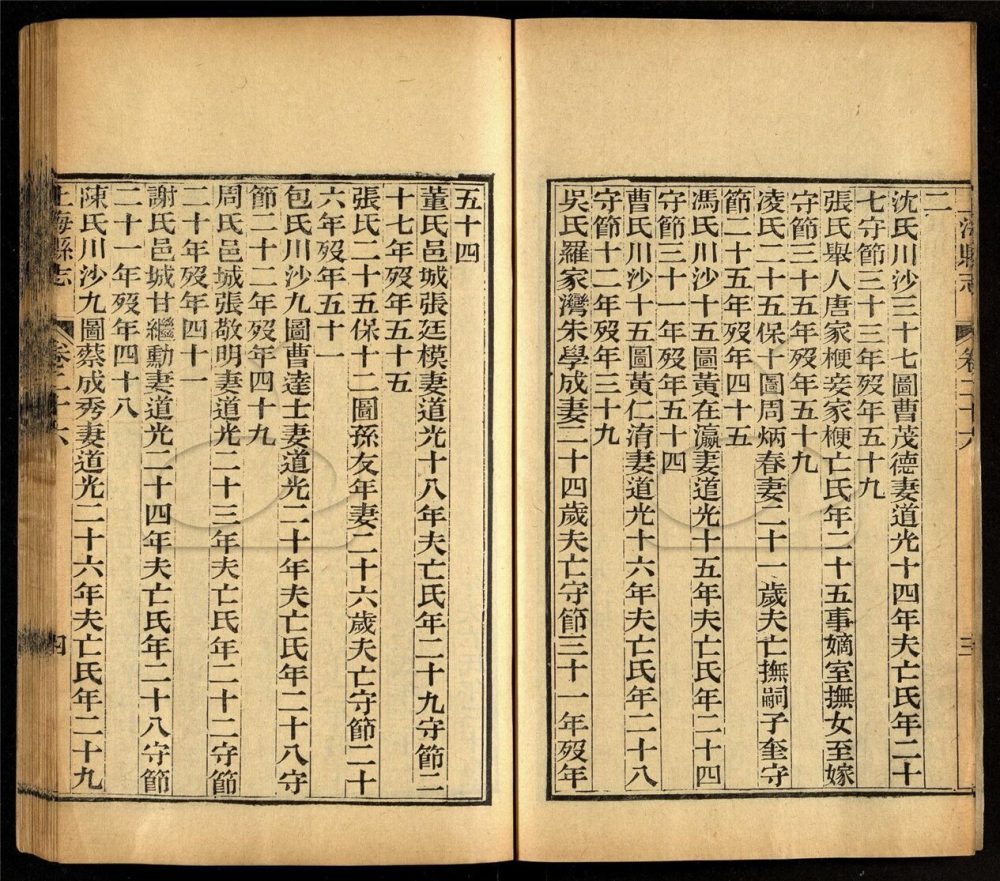 上海縣志 卷二十六 三
二
沈氏川沙三十七圖曹茂德妻道光十四年夫亡氏年二十
七守節三十三年歿年五十九
張氏舉人唐家楩妾家楩亡氏年二十五事嫡室撫女至嫁
守節三十五年歿年五十九
凌氏二十五保十圖周炳春妻二十一歲夫亡撫嗣子奎守
節二十五年歿年四十五
馮氏川沙十五圖黃在瀛妻道光十五年夫亡氏年二十四
守節三十一年歿年五十四
曹氏川沙十五圖黃仁淯妻道光十六年夫亡氏年二十八
守節十二年歿年三十九
吳氏羅家灣朱學成妻二十四歲夫亡守節三十一年歿年
五十四
董氏邑城張廷模妻道光十八年夫亡氏年二十九守節二
十七年歿年五十五
張氏二十五保十二圖孫友年妻二十六歲夫亡守節二十
六年歿年五十一
包氏川沙九圖曹達士妻道光二十年夫亡氏年二十八守
節二十二年歿年四十九
周氏邑城張敬明妻道光二十三年夫亡氏年二十二守節
二十年歿年四十一
謝氏邑城甘繼勳妻道光二十四年夫亡氏年二十八守節
二十一年歿年四十八
陳氏川沙九圖蔡成秀妻道光二十六年夫亡氏年二十九
上海縣志 卷二十六 四